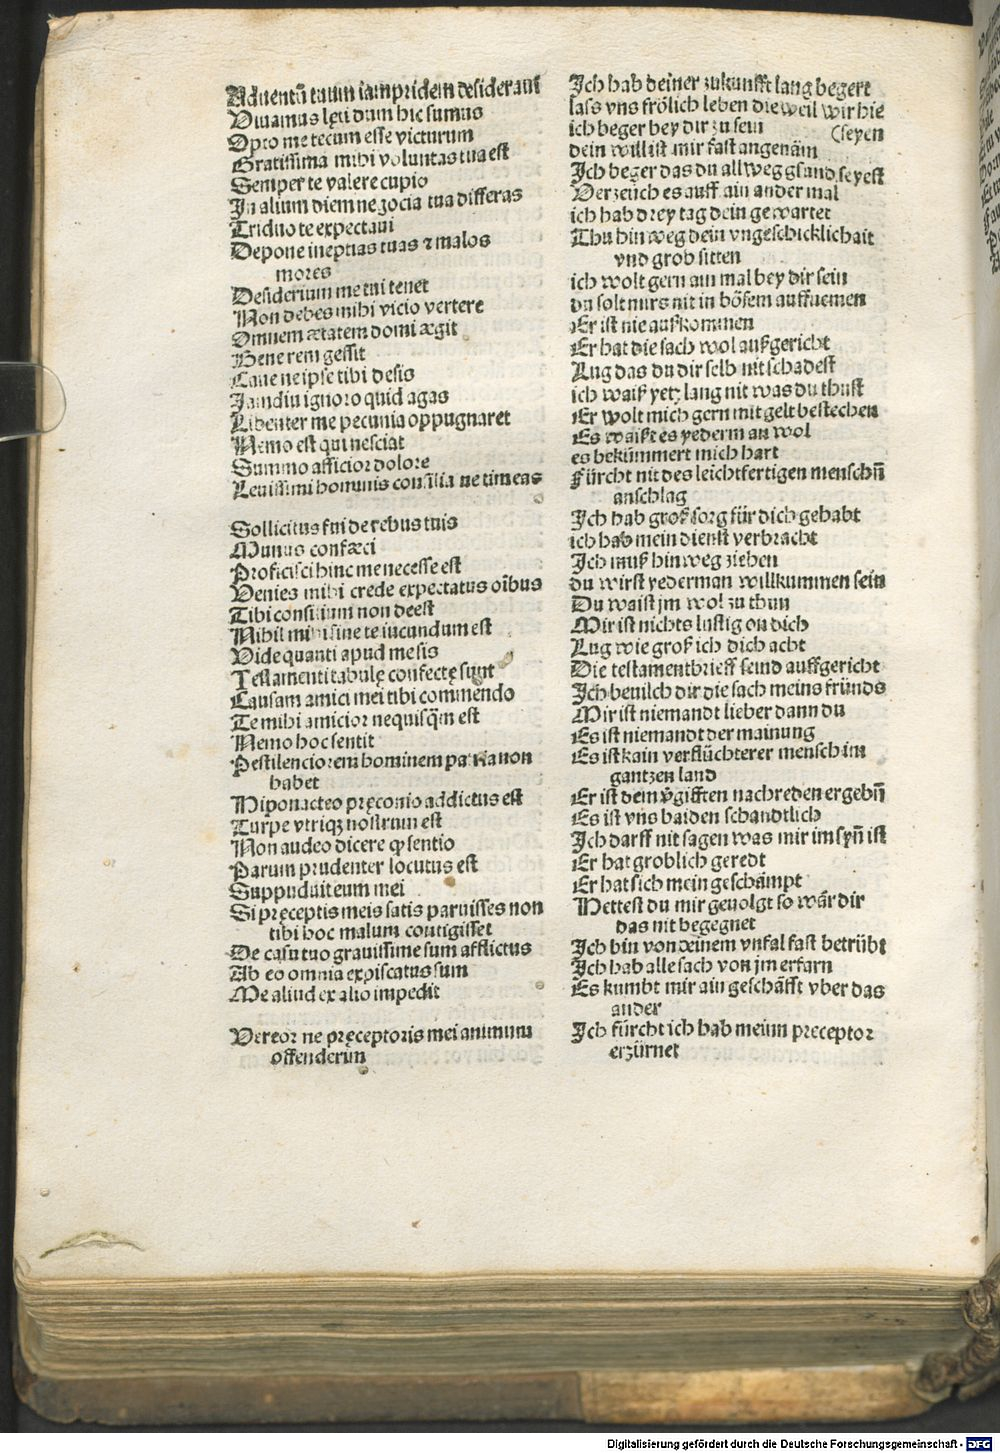 Aduentū tuum iampridem desideraui
Viuamus lęti dum hic sumus
Opto me tecum esse victurum
Gratissima mihi voluntas tua est
Semper te valere cupio
In alium diem ne zocia tua differas
Triduo te expectaui
Depone ineptias tuas ⁊ malos
mores
Desiderium me tui tenet
Non debes mihi vicio vertere
Omnem ætatem domi ægit
Bene rem gessit
Caue ne ipse tibi desis
Iamdiu ignoro quid agas
Libenter me pecunia oppugnaret
Nemo est qui nesciat
Summo afficior dolore
Leuissimi hominis consilia ne timeas
Sollicitus fui de rebus tuis
Munus confæci
Proficisci hinc me necesse est
Venies mihi crede expectatus oībus
Tibi consilium non deest
Nihil mihi sine te iucundum est
Vide quanti apud me sis
Testamenti tabulę confectę sunt
Causam amici mei tibi commendo
Te mihi amicior nequisq̄m est
Nemo hoc sentit
Pestilenciorem hominem patria non
habet
Hiponacteo pręconio addictus est
Turpe vtriqꝫ nostrum est
Non audeo dicere qđ sentio
Parum prudenter locutus est
Suppuduit eum mei
Si pręceptis meis satis paruisses non
tibi hoc malum contigisset
De casu tuo grauissime sum afflictus
Ab eo omnia expiscatus sum
Me aliud ex alio impedit
Vereor ne pręceptoris mei animum
offenderim
Ich hab deiner zukunfft lang begert
lass vns frölich leben die weil wir hie
ich beger bey dir zu sein (seyen
dein will ist mir fast angenäm
Ich beger das du allweg gsund seyest
Verzeüch es auff ain ander mal
ich hab drey tag dein gewartet
Thu hinweg dein vngeschicklichait
vnd grob sitten
ich wolt gern ain mal bey dir sein
du solt mirs nit in bösem auffnemen
Er ist nie außkommen
Er hat die sach wol außgericht
Lug das du dir selb nit schadest
ich waiß yetz lang nit was du thust
Er wolt mich gern mit gelt bestechen
Es waißt es yederman wol
es bekümmert mich hart
Fürcht nit des leichtfertigen menschn̄
anschlag
Ich hab groß sorg für dich gehabt
ich hab mein dienst verbracht
Ich muß hinweg ziehen
du wirst yederman willkummen sein
Du waist jm wol zu thun
Mir ist nichts lustig on dich
Lug wie groß ich dich acht
Die testamentbrieff seind auffgericht
Ich beuilch dir die sach meins fründs
Mir ist niemandt lieber dann du
Es ist niemandt der mainung
Es ist kain verflüchterer mensch im
gantzen land
Er ist dem v̄gifften nachreden ergebn̄
Es ist vns baiden schandtlich
Ich darff nit sagen was mir im syn̄ ist
Er hat groblich geredt
Er hat sich mein geschämpt
Hettest du mir geuolgt so wär dir
das nit begegnet
Ich bin von deinem vnfal fast betrübt
Ich hab alle sach von jm erfarn
Es kumbt mir ain geschäfft vber das
ander
Ich fürcht ich hab meim preceptor
erzürnet
Digitalisierung gefördert durch die Deutsche Forschungsgemeinschaft - DFG